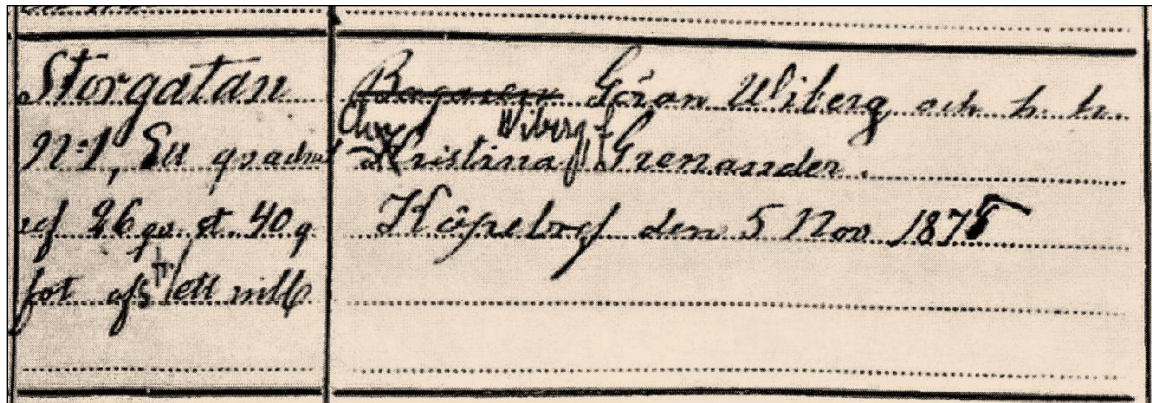 Storgatan
N:1, Ett quadrat
ref 26 qv. st. 40 q
fot afs ett mtl
Bagaren Göran Wiberg och h. h.
Wiberg f
Kristina Grenander.
Köpebref den 5 Nov 1875